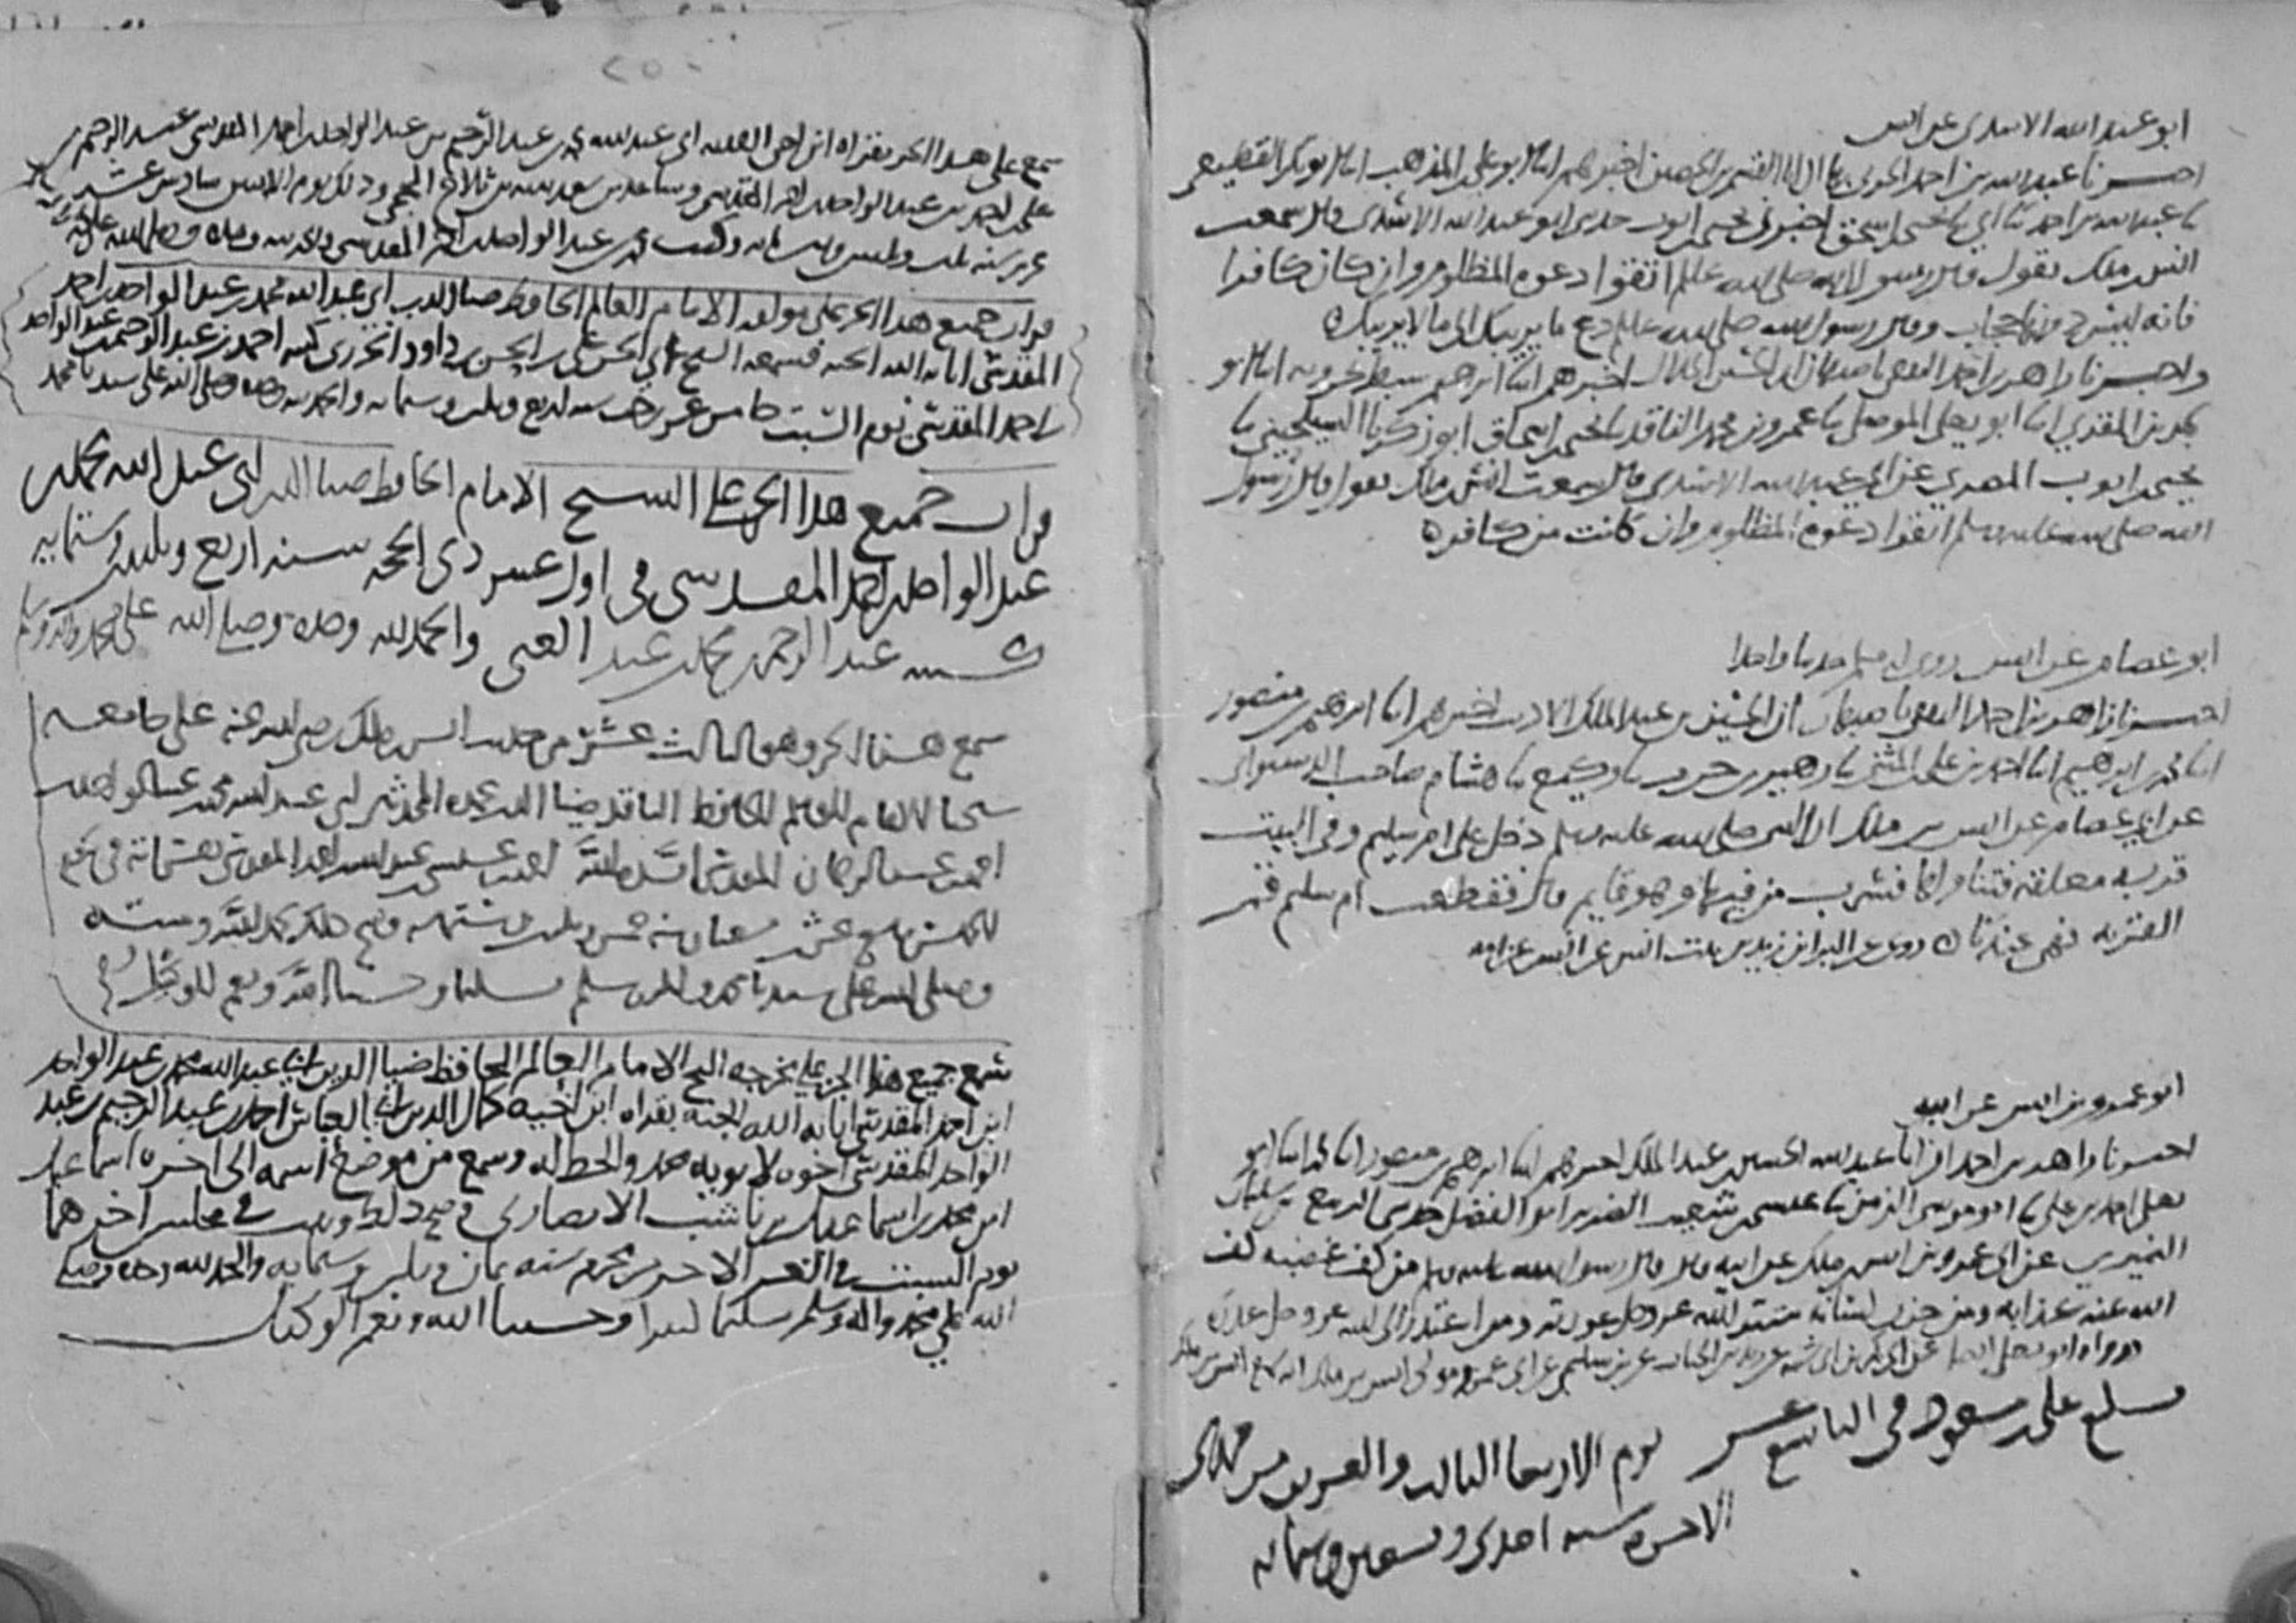 ابو عبد الله الاسدي عن انس
اخبرنا عبد الله بن احمد الحربي بها ان ابا القسم بن الحصين اخبرهم ابنا ابو علي المذهب ابنا ابو بكر القطيعي
نا عبد الله بن احمد نا ابي نا يحيى بن اسحق اخبرني يحيى بن ايوب حدثني ابو عبد الله الاسدي قال سمعت
انس بن ملك يقول قال رسول الله صلى الله عليه وسلم اتقوا دعوة المظلوم وان كان كافرا
فانه ليس دونها حجاب وقال رسول الله صلى الله عليه وسلم دع ما يريبك الى ما لا يريبك
واخبرنا زاهر بن احمد الثقفي باصبهان ان الحسين الخلال اخبرهم ابنا ابرهيم سبط بحرويه ابنا ابو
بكر بن المقري ابنا ابو يعلى الموصلي نا عمرو بن محمد الناقد نا يحيى بن اسحاق ابو زكريا السيلحيني نا
يحيى بن ايوب المصري عن ابي عبد الله الاسدي قال سمعت انس بن ملك يقول قال رسول
الله صلى الله عليه وسلم اتقوا دعوة المظلوم وان كانت من كافر
ابو عصام عن انس روى له مسلم حديثا واحدا
اخبرنا زاهر بن احمد الثقفي باصبهان ان الحسين بن عبد الملك الاديب اخبرهم ابنا ابرهيم بن منصور
ابنا محمد بن ابرهيم ابنا احمد بن علي بن المثنى نا زهير بن حرب نا وكيع نا هشام صاحب الدستوائي
عن ابي عصام عن انس بن ملك ان النبي صلى الله عليه وسلم دخل على ام سليم وفي البيت
قربة معلقة فتناولها فشرب من فيها وهو قايم قال فقطعت ام سليم فم
القربة فهي عندنا روي عن البراء بن زيد بن بنت انس عن انس عن امه
ابو عمرو بن انس عن ابيه
اخبرنا زاهر بن احمد ان ابا عبد الله الحسين بن عبد الملك اخبرهم ابنا ابرهيم بن منصور ابنا محمد ابنا ابو
يعلى احمد بن علي نا ابو موسى الزمن نا عيسى بن شعيب الضرير ابو الفضل حدثني الربيع بن سليمان
النميري عن ابي عمرو بن انس بن ملك عن ابيه قال قال رسول الله صلى الله عليه وسلم من كف غضبه كف
الله عنه عذابه ومن خزن لسانه ستر الله عز وجل عورته ومن اعتذر الى الله عز وجل قبل عذره
ورواه ابو يعلى ايضا عن ابي بكر بن ابي شيبة عن زيد بن الحباب عن بن سليم عن ابي عمرو مولى انس بن ملك انه سمع انس بن ملك
بلغ علي بن مسعود في التاسع عشر يوم الاربعا الثالث والعشرين من جمادى
الاخرة سنة احدى وسبعين وستمائة
سمع علي هذا الجزء بقراه ابن اخي الفقيه ابي عبد الله محمد بن عبد الرحيم بن عبد الواحد بن احمد المقدسي عبد الرحمن بن
علي بن احمد بن عبد الواحد بن احمد المقدسي وذلك يوم الاثنين سادس عشر
سنة ثلاث وثلثين وستمائه وكتب محمد بن عبد الواحد بن احمد المقدسي والحمد لله وحده وصلى الله على محمد
قرات جميع هذا الجزء على مولفه الامام العالم الحافظ ضيا الدين ابي عبد الله محمد بن عبد الواحد بن احمد
المقدسي اثابه الله الجنة فسمعه الشيخ ابي الحسن علي بن الحسن بن داود الجزري كتبه احمد بن عبد الرحمن بن عبد الواحد
بن احمد المقدسي يوم السبت خامس عشر رجب سنة اربع وثلثين وستمائة والحمد لله وحده وصلى الله على سيدنا محمد
قرات جميع هذا الجزء على الشيخ الامام الحافظ ضيا الدين ابي عبد الله محمد بن
عبد الواحد بن احمد المقدسي في اول عشر ذي الحجة سنة اربع وثلثين وستمايه
كتبه عبد الرحمن بن محمد بن عبد الغني والحمد لله وحده وصلى الله على محمد واله وسلم
سمع هذا الجزء وهو الثالث عشر من حديث انس بن ملك رضي الله عنه على جامعه
شيخنا الامام العالم الحافظ الناقد ضيا الدين عمدة المحدثين ابي عبد الله محمد بن عبد الواحد بن
احمد بن عبد الرحمن المقدسي ايده الله احمد بن عيسى بن عبد الله بن احمد المقدسي بقراته في يوم
الخميس عشر شعبان سنة خمس وثلثين وستمائة وصح ذلك بحمد الله ومنه
وصلى الله على سيدنا محمد واله وسلم تسليما وحسبنا الله ونعم الوكيل
سمع جميع هذا الجزء على مخرجه الشيخ الامام العالم الحافظ ضيا الدين ابي عبد الله محمد بن عبد الواحد
ابن احمد المقدسي اثابه الله الجنة بقراه ابن اخيه كمال الدين ابي العباس احمد بن عبد الرحيم بن عبد
الواحد المقدسي اخوه لابويه محمد والخط له وسمع من موضع اسمه الى اخره اسماعيل
ابن محمد بن اسماعيل الانصاري وصح ذلك وثبت في مجلس اخرهما
يوم السبت في العشر الاخر من محرم سنة ثمان وثلثين وستمايه والحمد لله وحده وصلى
الله على محمد واله وسلم تسليما كثيرا وحسبنا الله ونعم الوكيل